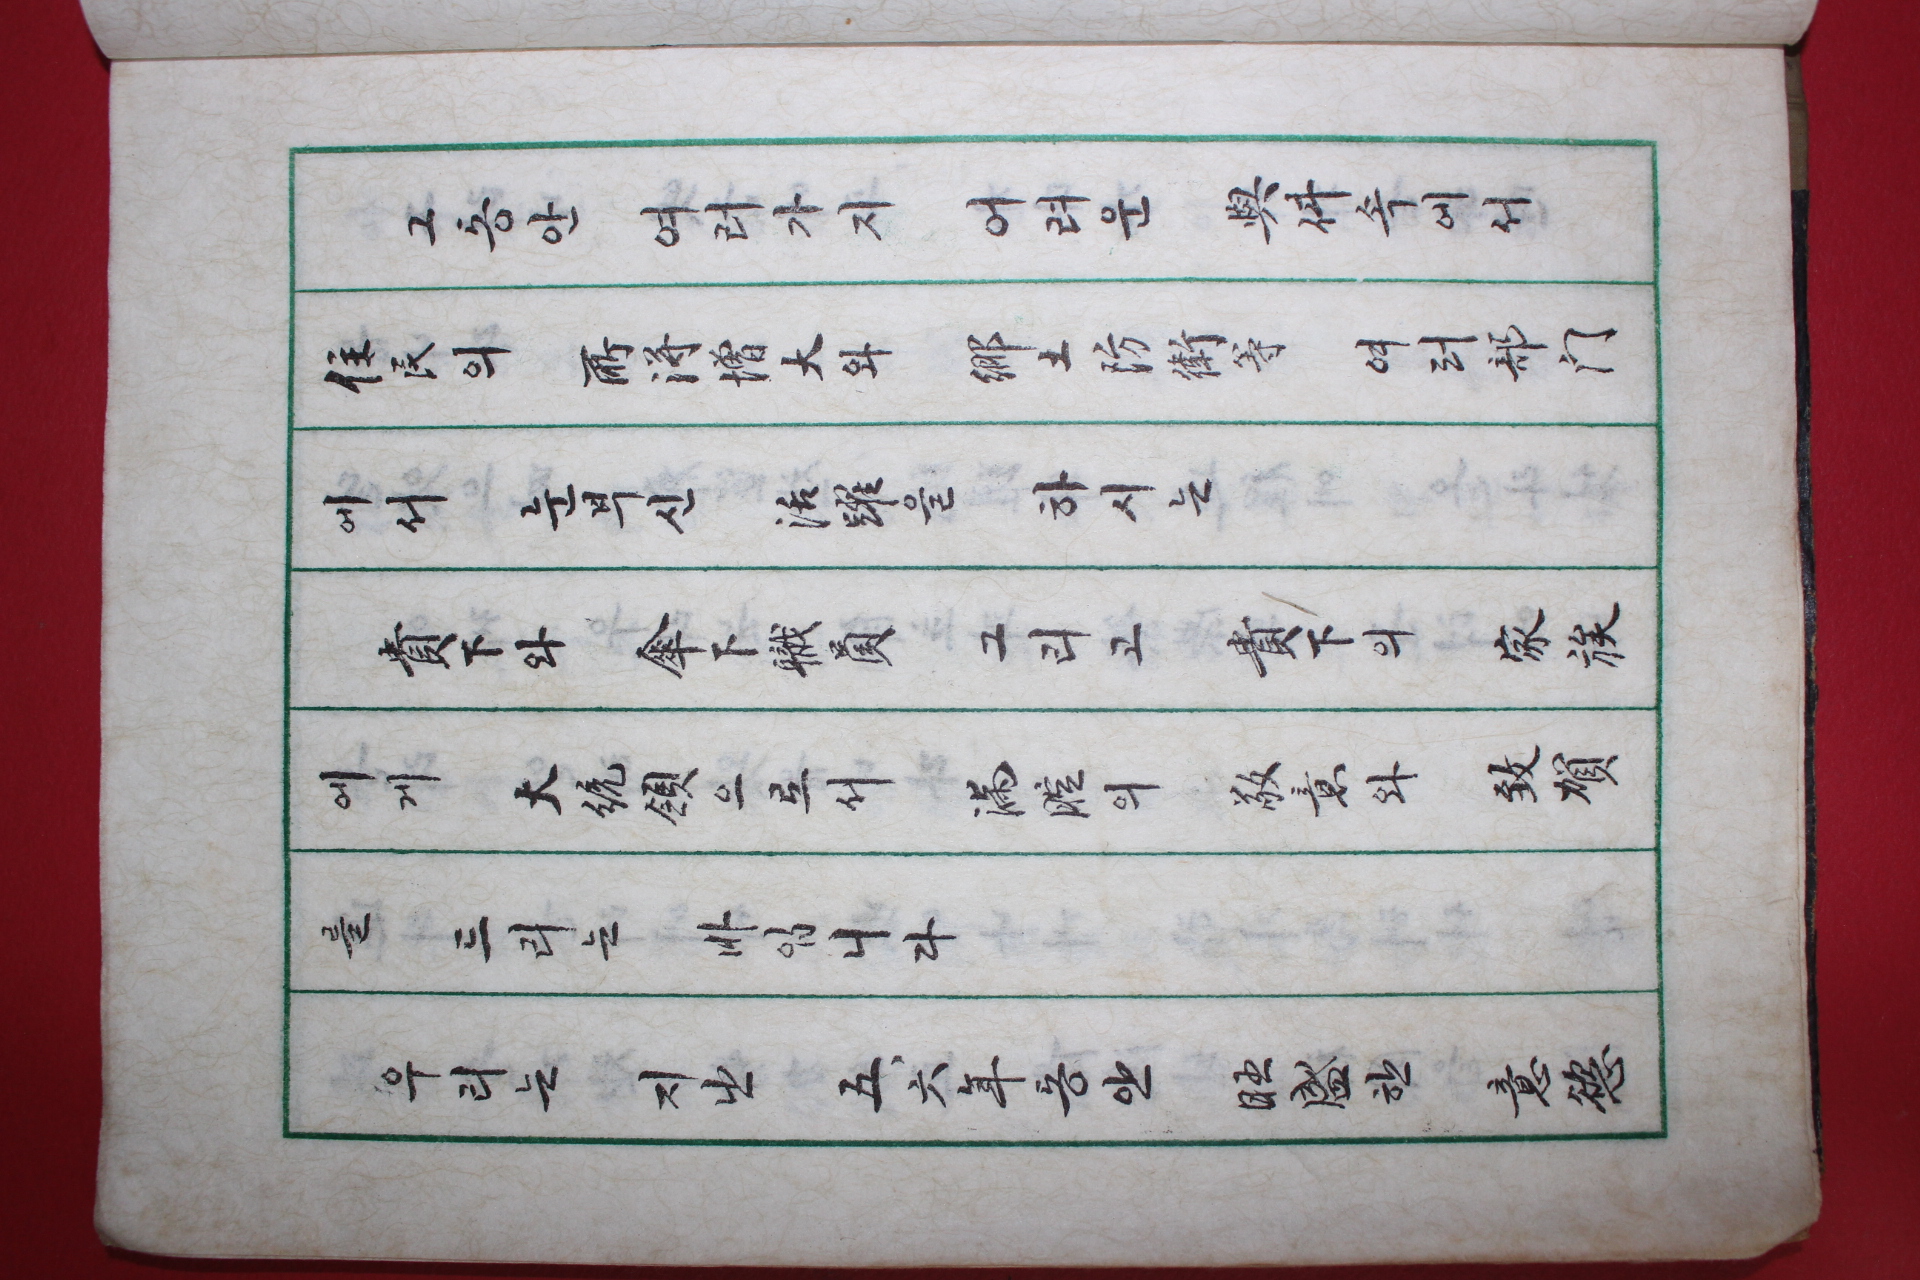 그동안 여러가지 어려운 與件속에서
住民의 所得增大와 鄕土防衛等 여러部门
에서 눈부신 活躍을 하시는
貴下와 傘下職員 그리고 貴下의 家族
에게 大統領으로서 滿腔의 敬意와 致賀
를 드리는 바입니다
우리는 지난 五、六年동안 旺盛한 意慾